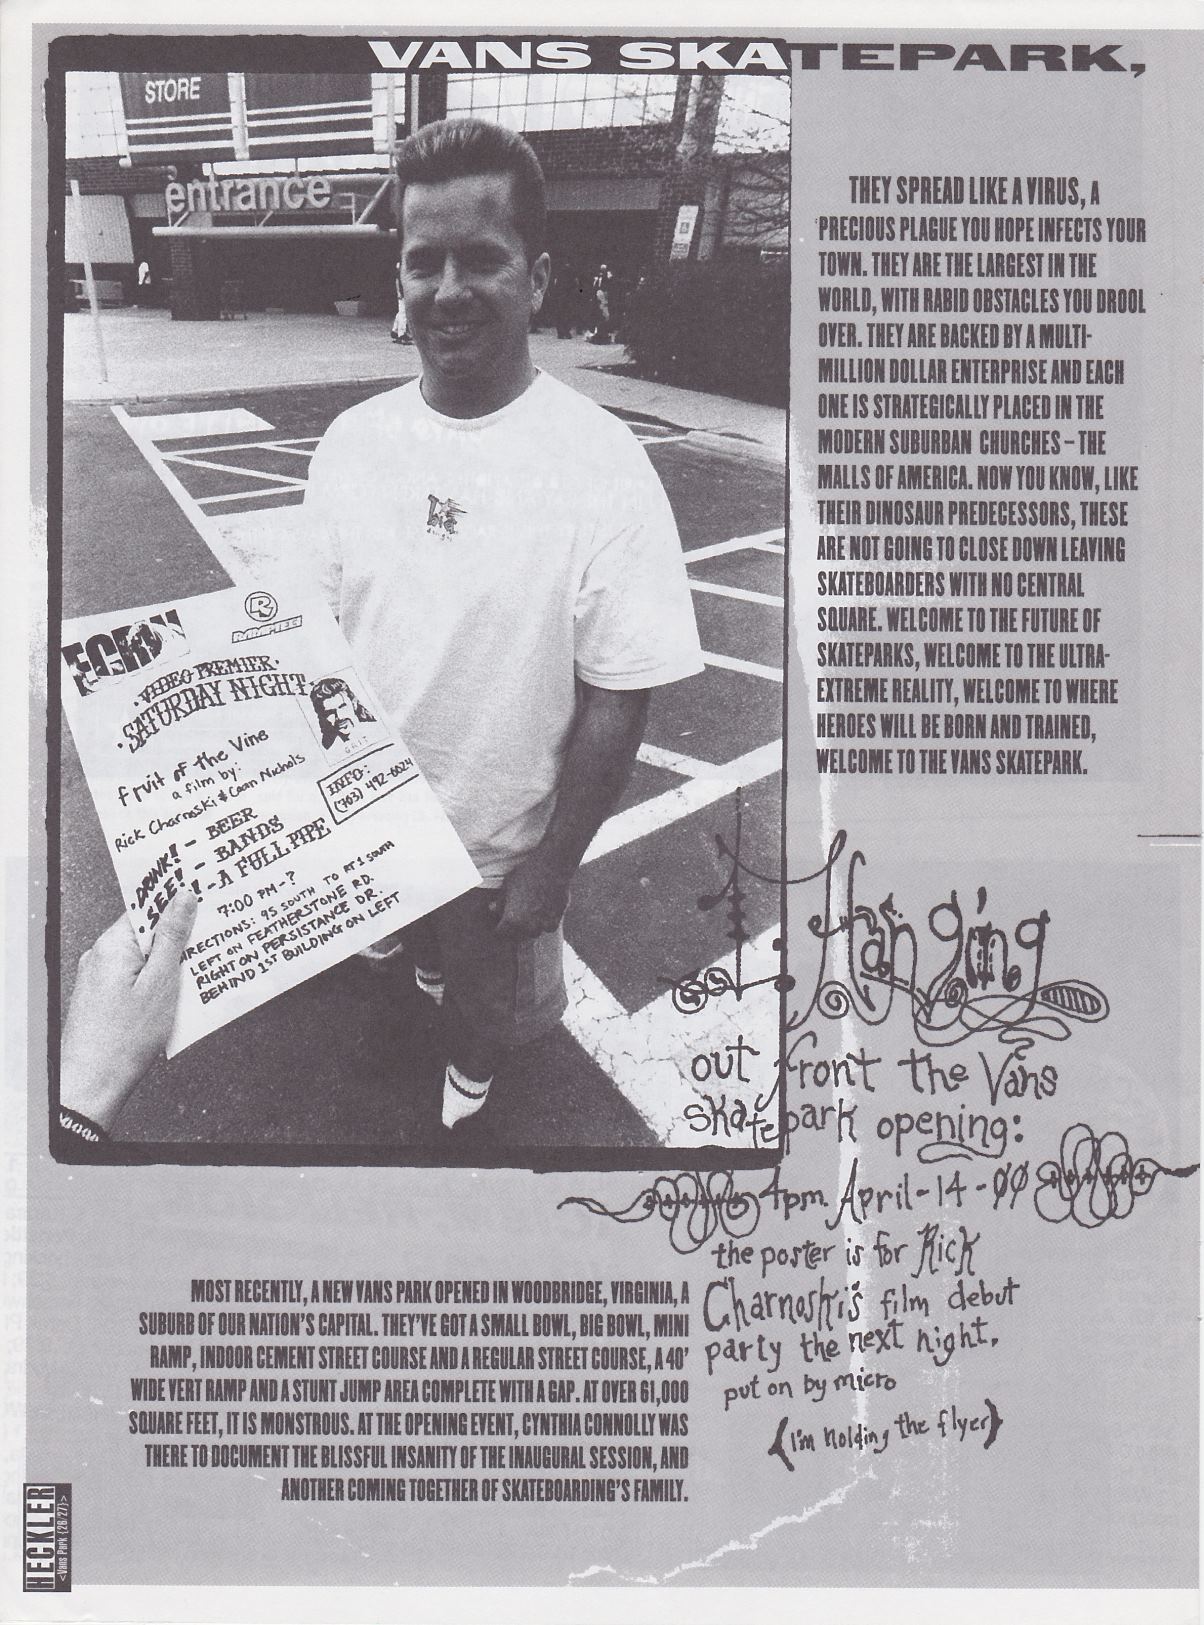 VANS SKATEPARK,
STORE
entrance
THEY SPREAD LIKE A VIRUS, A
PRECIOUS PLAGUE YOU HOPE INFECTS YOUR
TOWN. THEY ARE THE LARGEST IN THE
WORLD, WITH RABID OBSTACLES YOU DROOL
OVER. THEY ARE BACKED BY A MULTI-
MILLION DOLLAR ENTERPRISE AND EACH
ONE IS STRATEGICALLY PLACED IN THE
MODERN SUBURBAN CHURCHES – THE
MALLS OF AMERICA. NOW YOU KNOW, LIKE
THEIR DINOSAUR PREDECESSORS, THESE
ARE NOT GOING TO CLOSE DOWN LEAVING
SKATEBOARDERS WITH NO CENTRAL
SQUARE. WELCOME TO THE FUTURE OF
SKATEPARKS, WELCOME TO THE ULTRA-
EXTREME REALITY, WELCOME TO WHERE
HEROES WILL BE BORN AND TRAINED,
WELCOME TO THE VANS SKATEPARK.
R
VIDEO PREMIER
SATURDAY NIGHT
fruit of the Vine
a film by:
Rick Charnoski & Coan Nichols
INFO:
(703) 492-6024
DRINK! - BEER
SEE! - BANDS
! - A FULL PIPE
7:00 PM - ?
DIRECTIONS: 95 SOUTH TO RT 1 SOUTH
LEFT ON FEATHERSTONE RD.
RIGHT ON PERSISTANCE DR.
BEHIND 1ST BUILDING ON LEFT
Hanging
out front the Vans
skatepark opening:
4pm April-14-00
the poster is for Rick
Charnoski's film debut
party the next night.
put on by micro
(I'm holding the flyer)
MOST RECENTLY, A NEW VANS PARK OPENED IN WOODBRIDGE, VIRGINIA, A
SUBURB OF OUR NATION'S CAPITAL. THEY'VE GOT A SMALL BOWL, BIG BOWL, MINI
RAMP, INDOOR CEMENT STREET COURSE AND A REGULAR STREET COURSE, A 40'
WIDE VERT RAMP AND A STUNT JUMP AREA COMPLETE WITH A GAP. AT OVER 61,000
SQUARE FEET, IT IS MONSTROUS. AT THE OPENING EVENT, CYNTHIA CONNOLLY WAS
THERE TO DOCUMENT THE BLISSFUL INSANITY OF THE INAUGURAL SESSION, AND
ANOTHER COMING TOGETHER OF SKATEBOARDING'S FAMILY.
HECKLER
<Vans Park {26/27}>